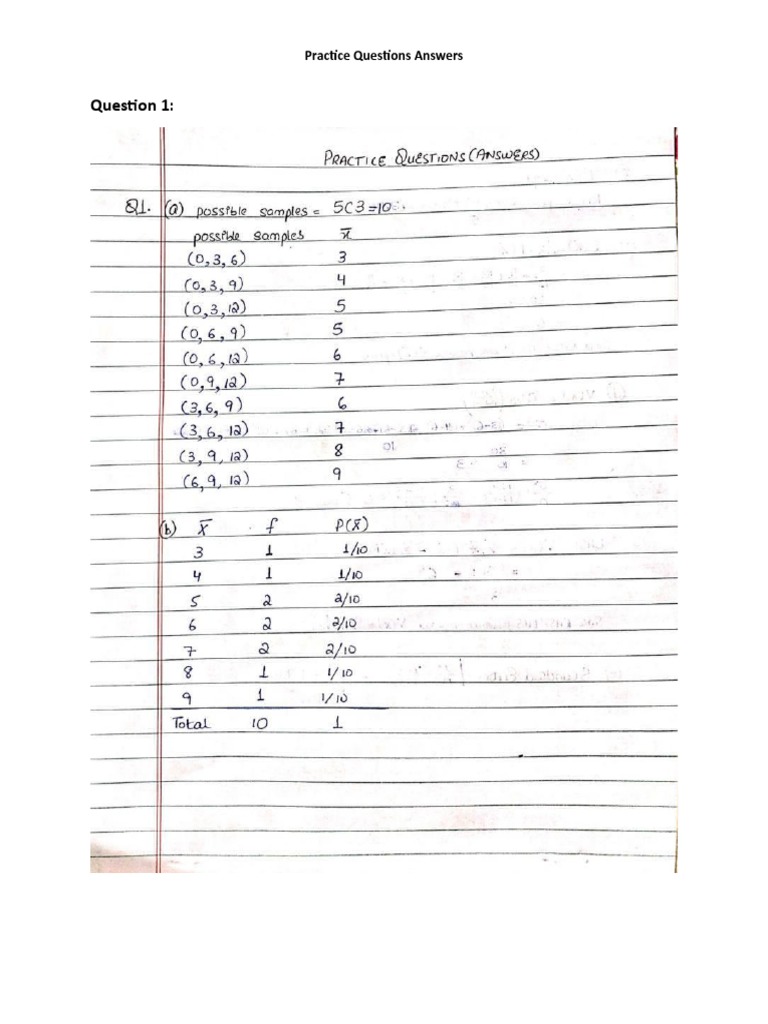 Practice Questions Answers
Question 1:
PRACTICE QUESTIONS (ANSWERS)
Q1. (a) possible samples = 5C3 = 10
possible samples x̄
(0,3,6) 3
(0,3,9) 4
(0,3,12) 5
(0,6,9) 5
(0,6,12) 6
(0,9,12) 7
(3,6,9) 6
(3,6,12) 7
(3,9,12) 8
(6,9,12) 9
(b) X̄ f P(x̄)
3 1 1/10
4 1 1/10
5 2 2/10
6 2 2/10
7 2 2/10
8 1 1/10
9 1 1/10
Total 10 1